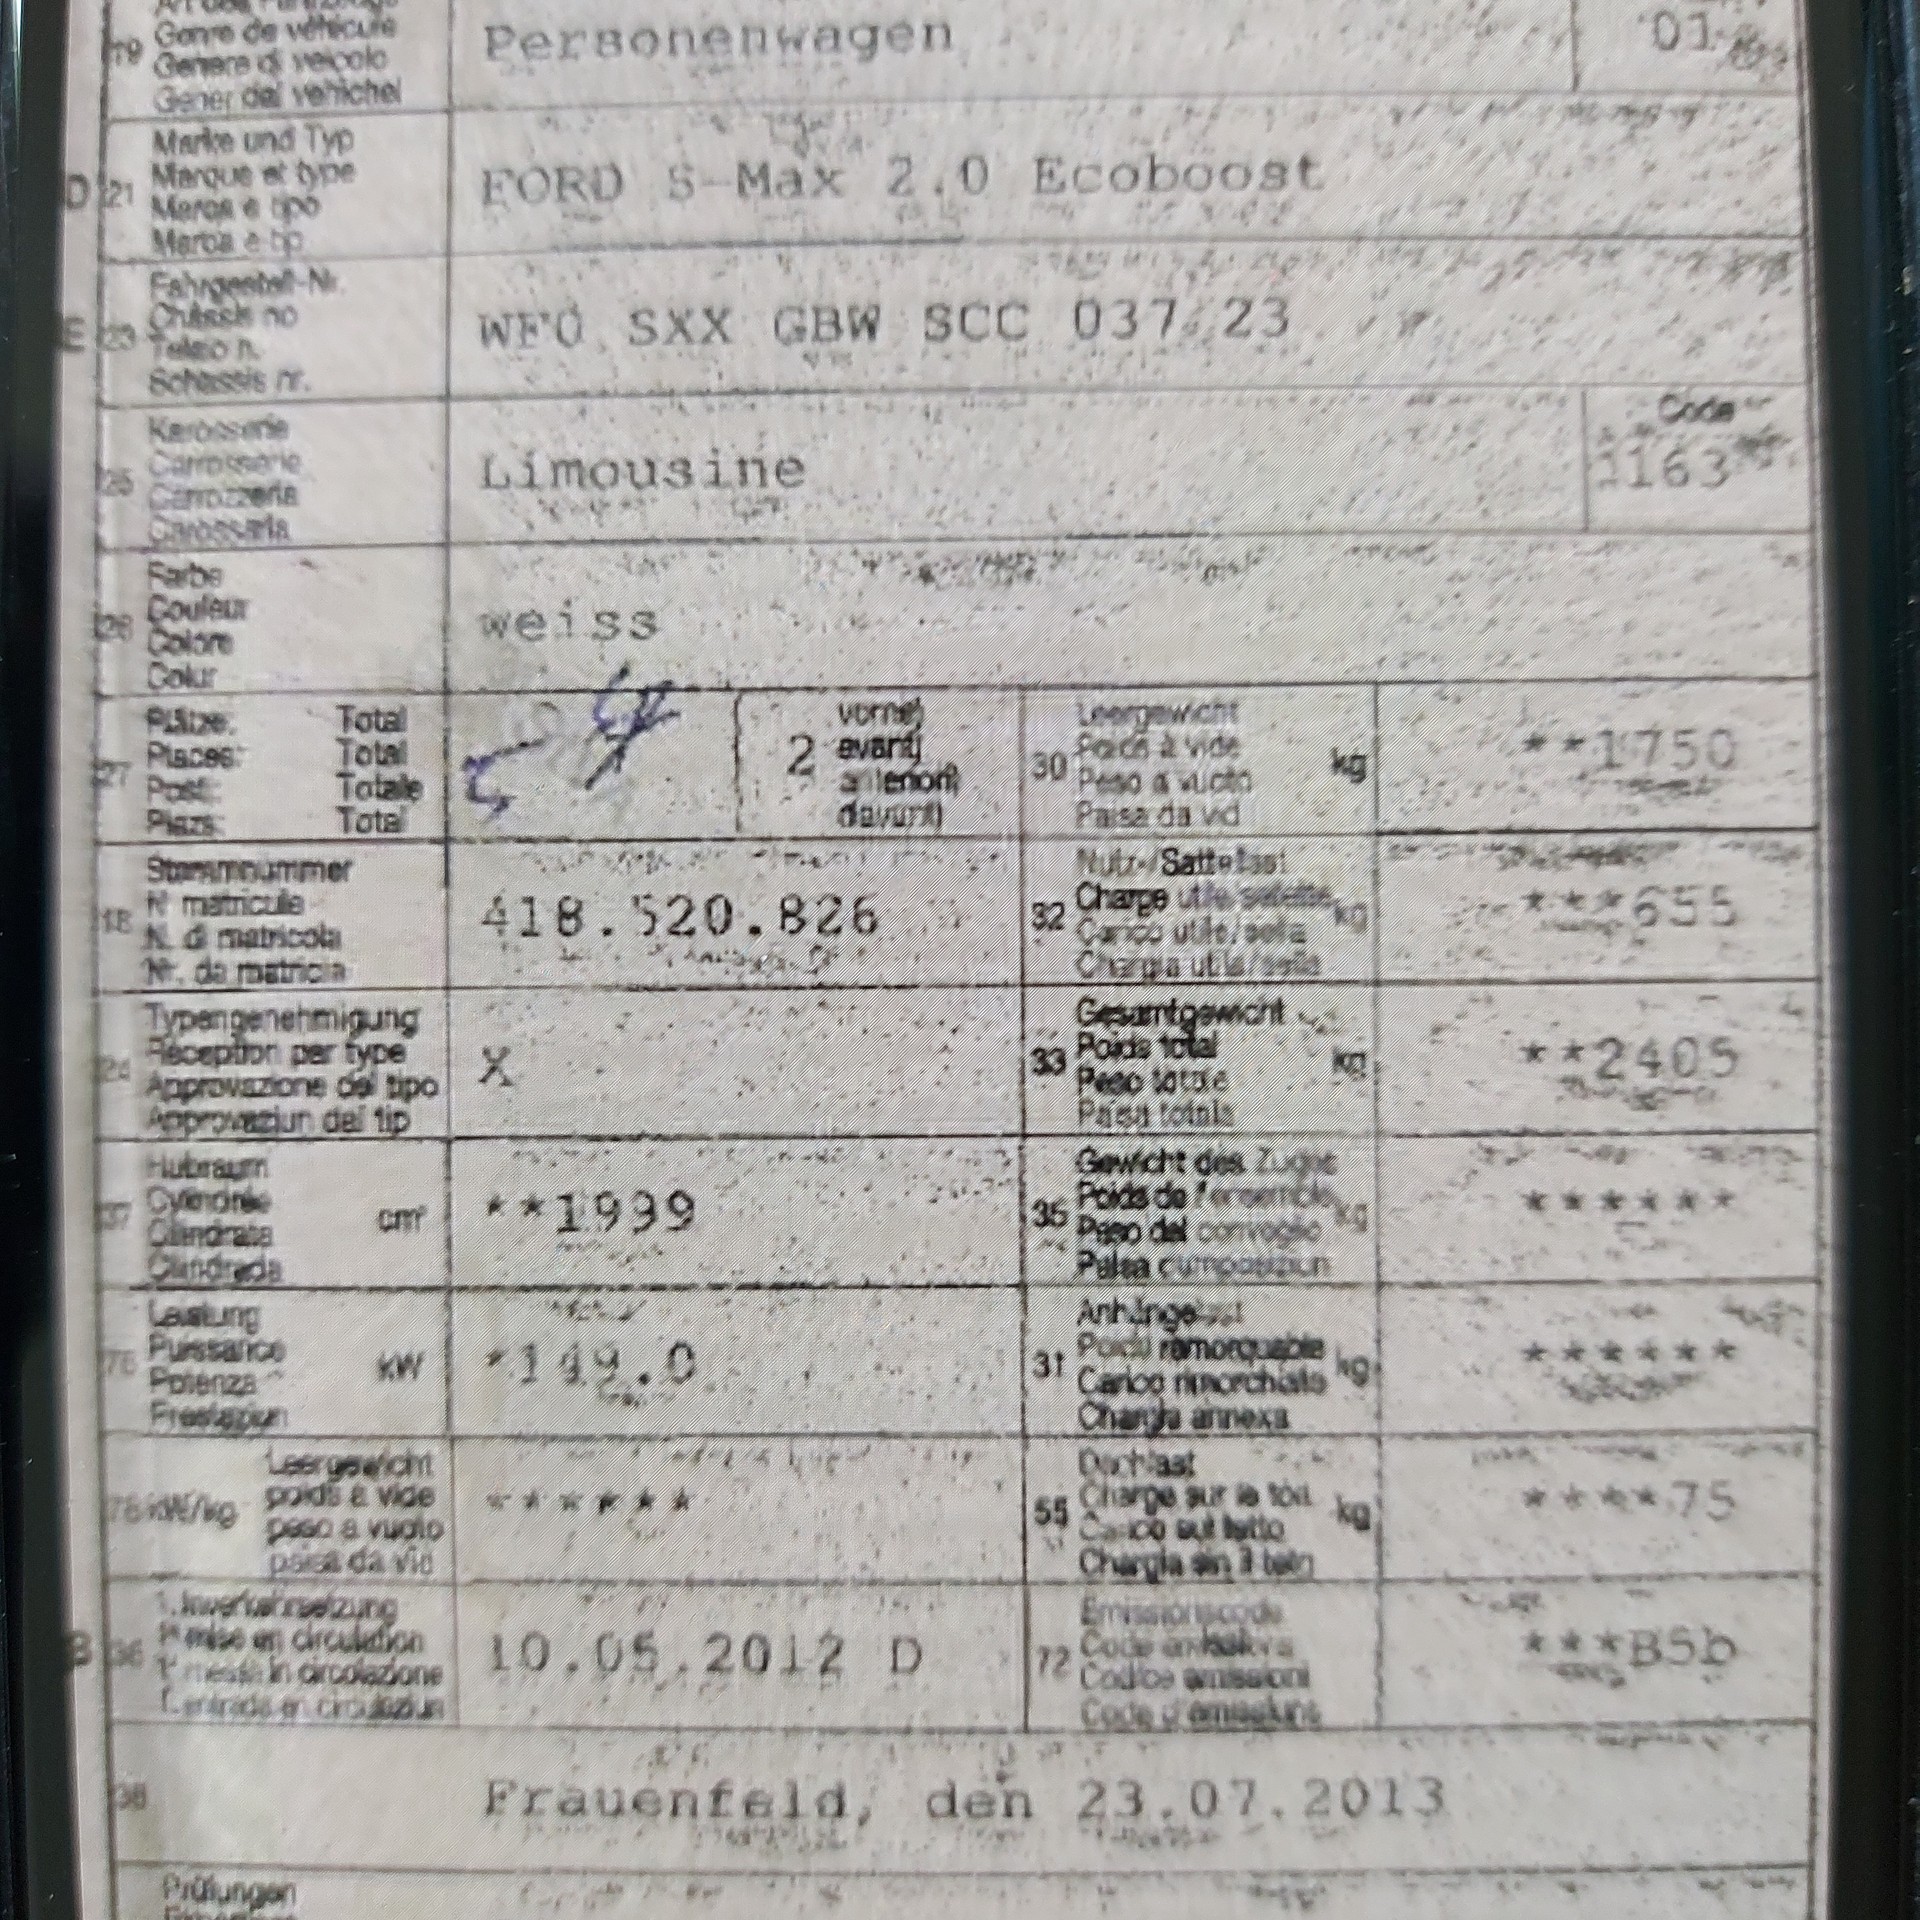 Genre de véhicule
19 Genere di veicolo
Gener dal vehichel
Personenwagen
01
Marke und Typ
D 21 Marque et type
Marca e tipo
Marca e tip
FORD S-Max 2.0 Ecoboost
Fahrgestell-Nr.
E 23 Châssis no
Telaio n.
Schassis nr.
WF0 SXX GBW SCC 037 23
Karosserie
25 Carrosserie
Carrozzeria
Carossaria
Limousine
Code
1163
Farbe
26 Couleur
Colore
Colur
weiss
Plätze: Total
27 Places: Total
Posti: Totale
Plazs: Total
2
vorne)
avant)
anteriori)
davant)
30 Leergewicht
Poids à vide
Peso a vuoto
Paisa da vid
kg
**1750
Stammnummer
18 N° matricule
N. di matricola
Nr. da matricla
418.520.826
32 Nutz-/Sattellast
Charge utile/sellette
Carico utile/sella
Chargia utila/sella
kg
***655
Typengenehmigung
24 Réception par type
Approvazione del tipo
Approvaziun dal tip
X
33 Gesamtgewicht
Poids total
Peso totale
Paisa totala
kg
**2405
Hubraum
37 Cylindrée
Cilindrata
Cilindrada
cm³
**1999
35 Gewicht des Zuges
Poids de l'ensemble
Peso del convoglio
Paisa cumposiziun
kg
******
Leistung
76 Puissance
Potenza
Prestaziun
kW
*149.0
31 Anhängelast
Poids remorquable
Carico rimorchiato
Chargia annexa
kg
******
Leergewicht
78 kW/kg poids à vide
peso a vuoto
paisa da vid
******
55 Dachlast
Charge sur le toit
Carico sul tetto
Chargia sin il tetg
kg
****75
1. Inverkehrsetzung
B 36 1re mise en circulation
1a messa in circolazione
1. entrada en circulaziun
10.05.2012 D
72 Emissionscode
Codice emissioni
Code d'emissiuns
***B5b
38
Frauenfeld, den 23.07.2013
Prüfungen